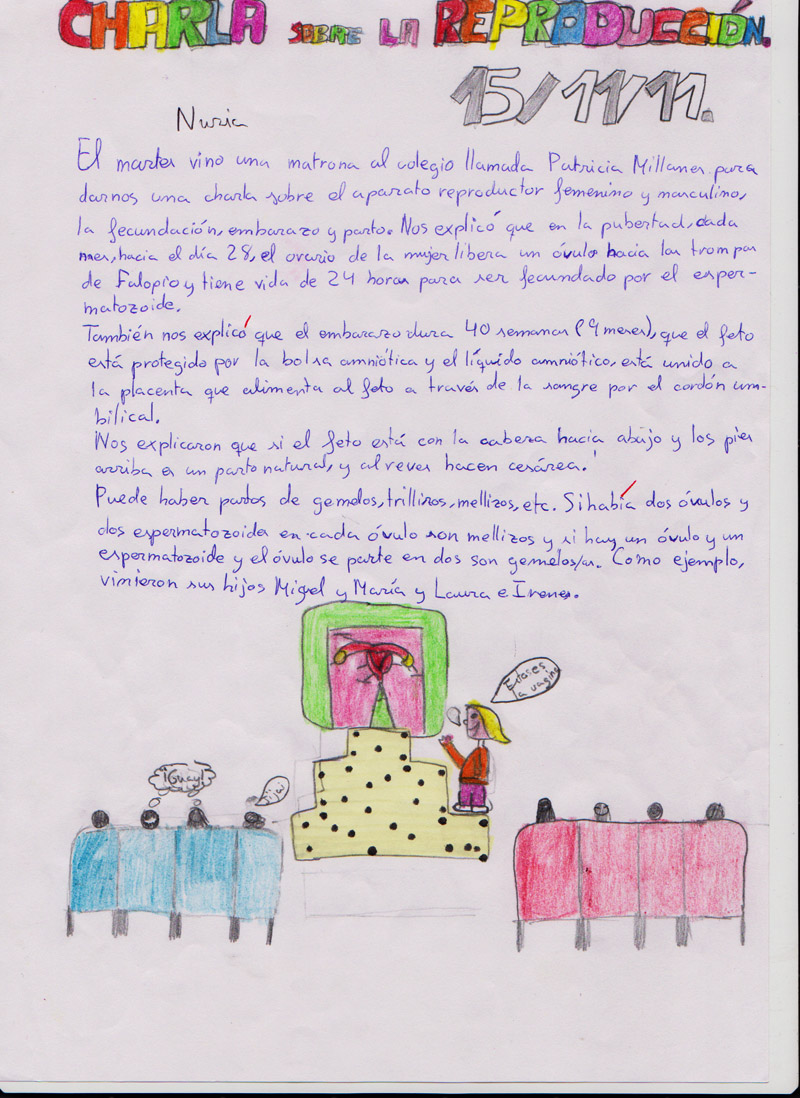 CHARLA SOBRE LA REPRODUCCIÓN.
15/11/11.
Nuria
El martes vino una matrona al colegio llamada Patricia Millanes para
darnos una charla sobre el aparato reproductor femenino y masculino,
la fecundación, embarazo y parto. Nos explicó que en la pubertad, cada
mes, hacia el día 28, el ovario de la mujer libera un óvulo hacia las trompas
de Falopio y tiene vida de 24 horas para ser fecundado por el esper-
matozoide.
También nos explicó que el embarazo dura 40 semanas (9 meses), que el feto
está protegido por la bolsa amniótica y el líquido amniótico, está unido a
la placenta que alimenta al feto a través de la sangre por el cordón um-
bilical.
Nos explicaron que si el feto está con la cabeza hacia abajo y los pies
arriba es un parto natural, y al reves hacen cesárea.
Puede haber partos de gemelos, trillizos, mellizos, etc. Si había dos óvulos y
dos espermatozoides en cada óvulo son mellizos y si hay un óvulo y un
espermatozoide y el óvulo se parte en dos son gemelos/as. Como ejemplo,
vinieron sus hijos Migel y María y Laura e Irene.
Estaes
la vagina
¡Guay!